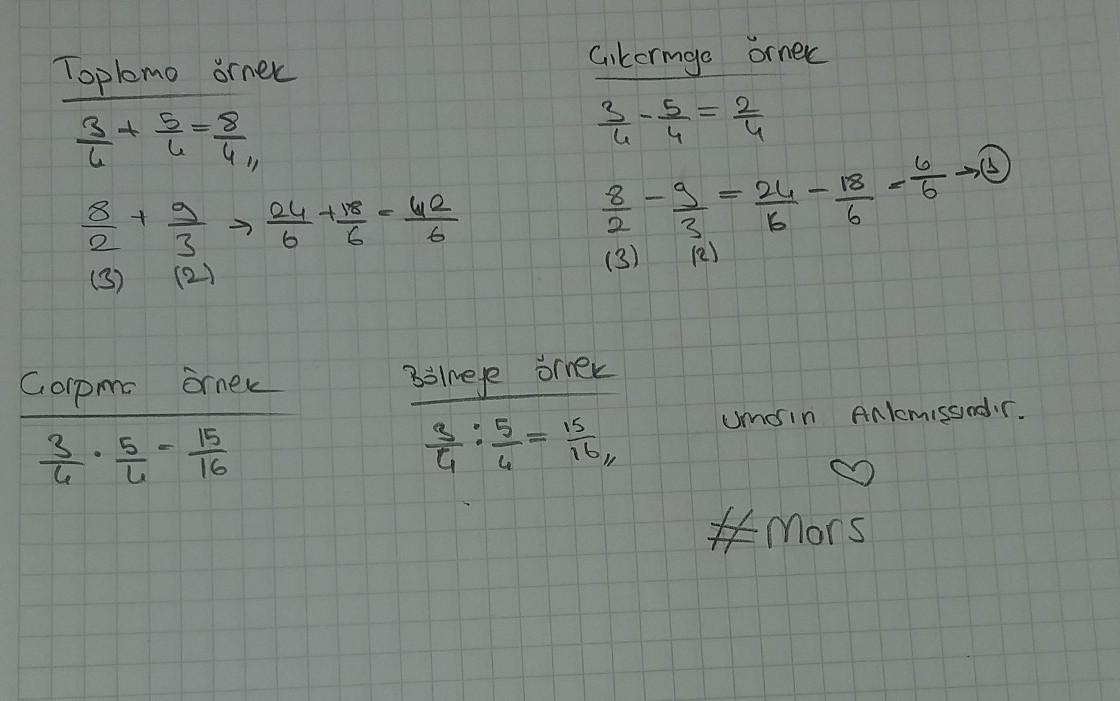 Toplama örnek
3/4 + 5/4 = 8/4 ,,
8/2 + 9/3 → 24/6 + 18/6 = 42/6
(3) (2)
Çıkarmaya örnek
3/4 - 5/4 = 2/4
8/2 - 9/3 = 24/6 - 18/6 = 6/6 → 1
(3) (2)
Çarpma örnek
3/4 . 5/4 = 15/16
Bölmeye örnek
3/4 : 5/4 = 15/16 ,,
umarın Anlamışsındır.
♡
#mars